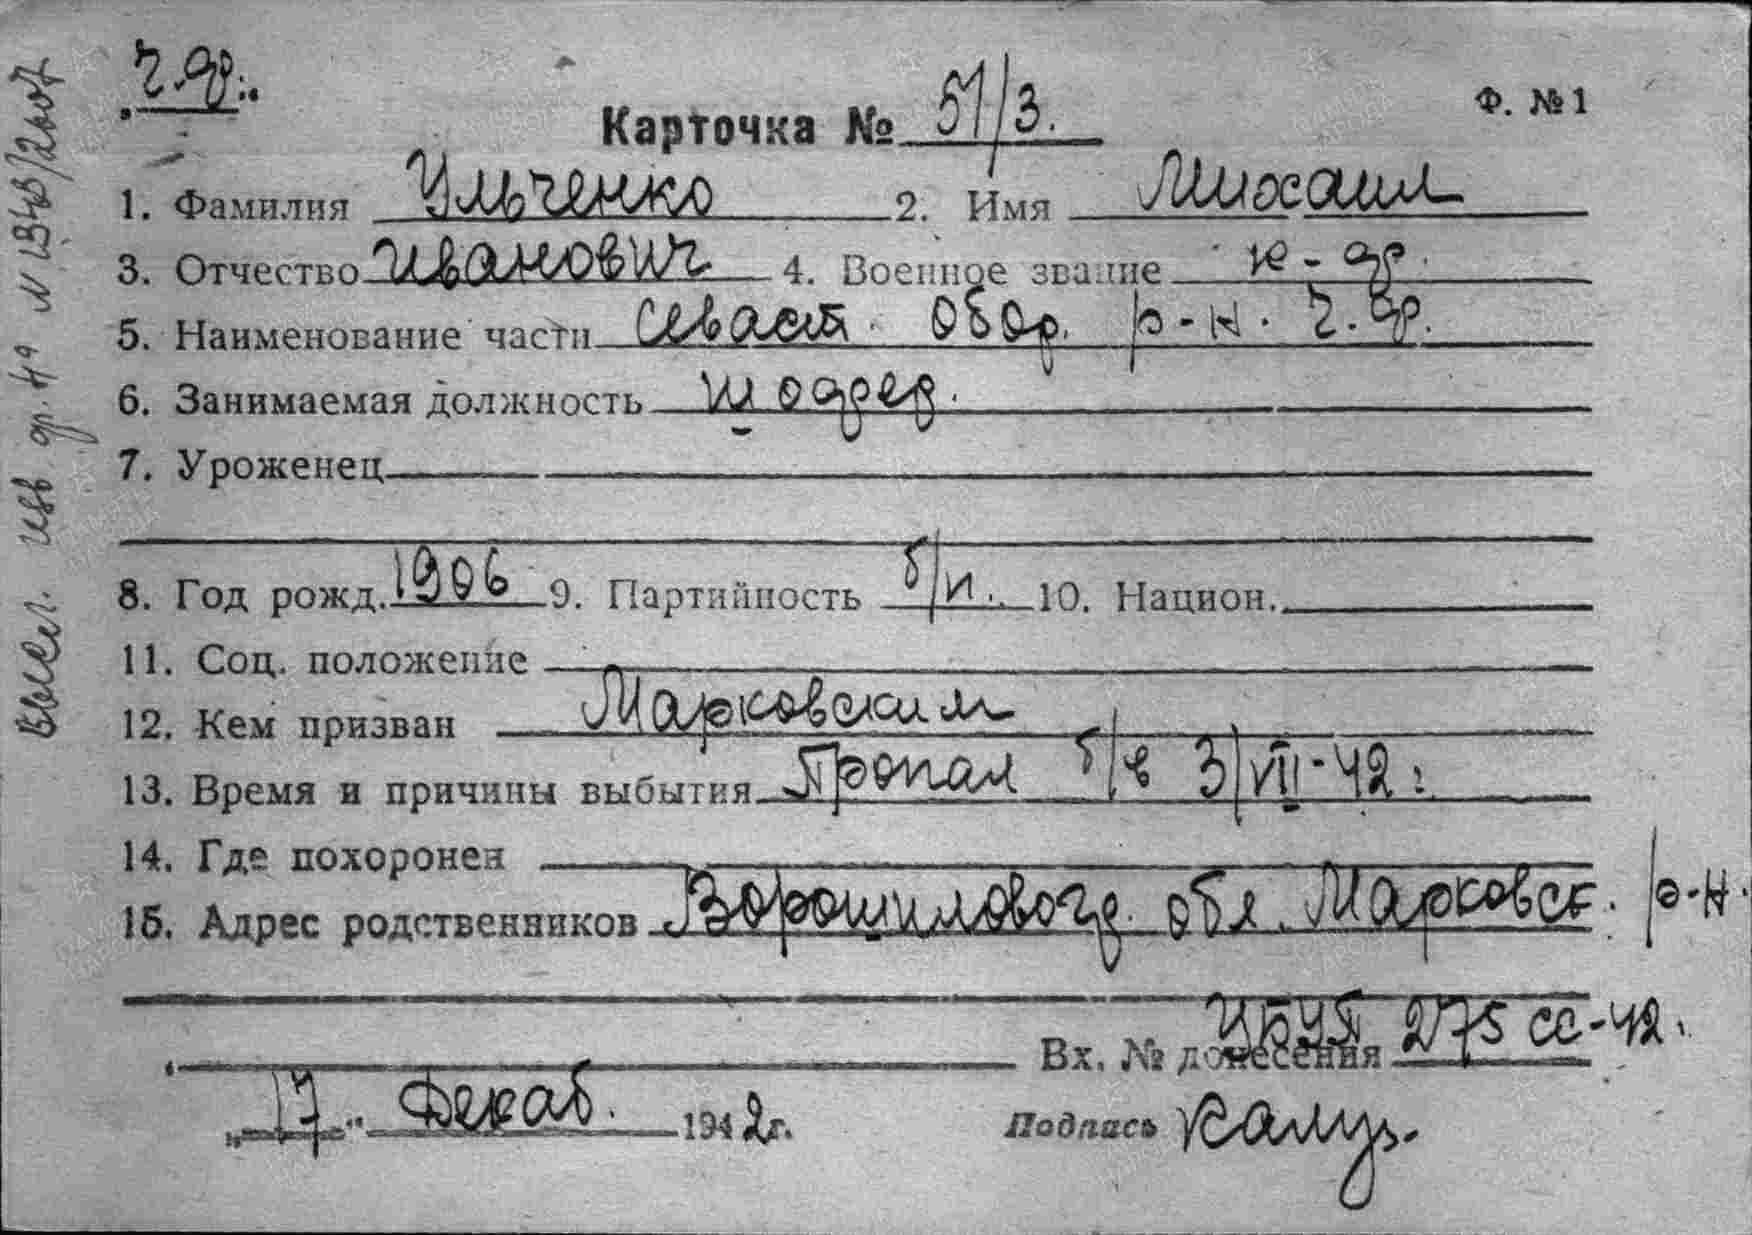 ч.ф.
Карточка № 51/3. Ф. №1
1. Фамилия Ульченко 2. Имя Михаил
3. Отчество Иванович 4. Военное звание к-ф.
5. Наименование части Севаст. Обор. р-н. ч.ф.
6. Занимаемая должность шофер.
7. Уроженец
8. Год рожд. 1906 9. Партийность б/п. 10. Национ.
11. Соц. положение
12. Кем призван Марковским
13. Время и причины выбытия Пропал б/в 3/VII-42 г.
14. Где похоронен
15. Адрес родственников Ворошиловогр. обл. Марковск. р-н.
Вх. № донесения УБУП 275 сс-42.
„17" Декаб. 1942г. Подпись
высл. изв. ф. 4а N